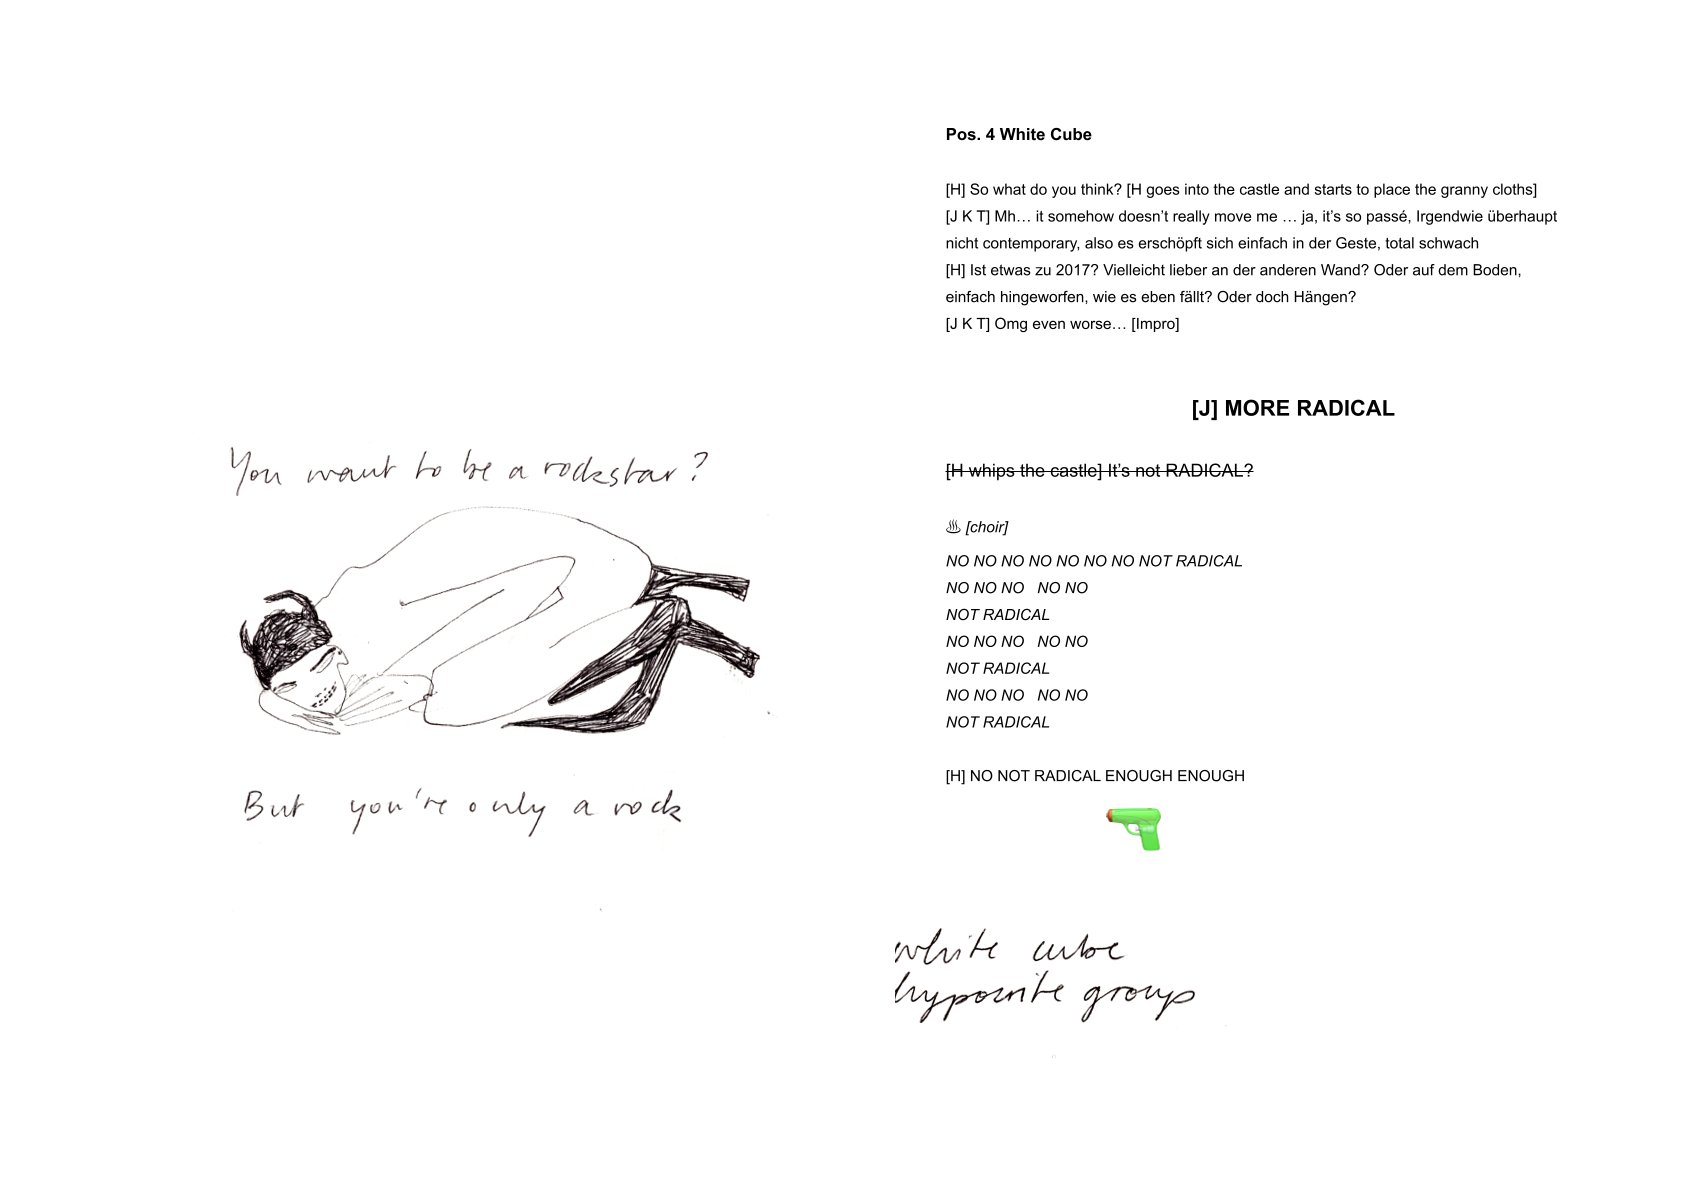 You want to be a rockstar?
But you're only a rock
Pos. 4 White Cube
[H] So what do you think? [H goes into the castle and starts to place the granny cloths]
[J K T] Mh… it somehow doesn’t really move me … ja, it’s so passé, Irgendwie überhaupt
nicht contemporary, also es erschöpft sich einfach in der Geste, total schwach
[H] Ist etwas zu 2017? Vielleicht lieber an der anderen Wand? Oder auf dem Boden,
einfach hingeworfen, wie es eben fällt? Oder doch Hängen?
[J K T] Omg even worse… [Impro]
[J] MORE RADICAL
[H whips the castle] It’s not RADICAL?
♨ [choir]
NO NO NO NO NO NO NO NOT RADICAL
NO NO NO   NO NO
NOT RADICAL
NO NO NO   NO NO
NOT RADICAL
NO NO NO   NO NO
NOT RADICAL
[H] NO NOT RADICAL ENOUGH ENOUGH
white cube
hypocrite group